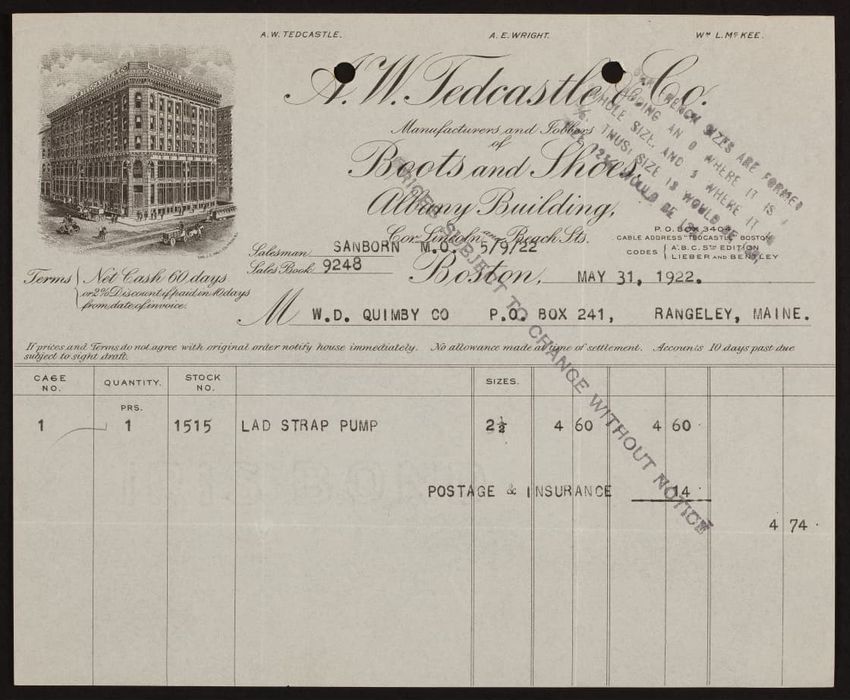 A. W. TEDCASTLE. A. E. WRIGHT. Wᴹ L. Mᶜ KEE.
A. W. Tedcastle & Co.
Manufacturers and Jobbers
of
Boots and Shoes,
Albany Building,
Cor. Lincoln and Beach Sts.
P. O. BOX 3404
CABLE ADDRESS "TEDCASTLE" BOSTON
CODES { A.B.C. 5TH EDITION
LIEBER AND BENTLEY
Salesman SANBORN M.O. 5/9/22
Sales Book 9248
Boston, MAY 31, 1922.
Terms { Net Cash 60 days
or 2% Discount if paid in 10 days
from date of invoice.
M W.D. QUIMBY CO P.O. BOX 241, RANGELEY, MAINE.
If prices and Terms do not agree with original order notify house immediately. No allowance made at time of settlement. Accounts 10 days past due
subject to sight draft.
CASE NO. QUANTITY. STOCK NO. SIZES.
PRS.
1 1 1515 LAD STRAP PUMP 2½ 4 60 4 60
POSTAGE & INSURANCE 14
4 74
PRICES SUBJECT TO CHANGE WITHOUT NOTICE
SIZES ARE FORMED
ADDING AN 0 WHERE IT IS A
WHOLE SIZE, AND 5 WHERE IT IS
½. THUS: SIZE 18 WOULD BE
SIZE 12½ WOULD BE